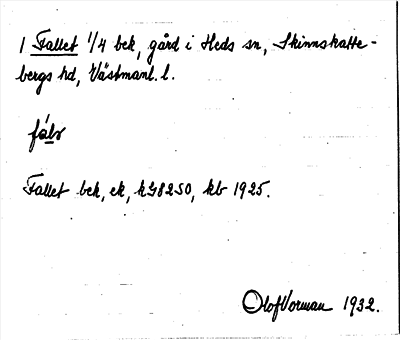 1 Fallet 1/4 bek, gård i Heds sn, Skinnskatte-
bergs hd, Västmanl. l.
Fallet bek, ek, kb 1925.
Olof Vorman 1932.